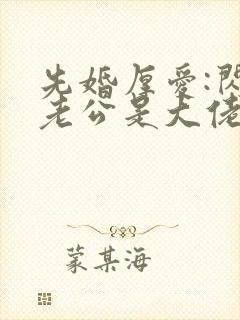 先婚厚愛:閃
老公是大佬
蒙某海